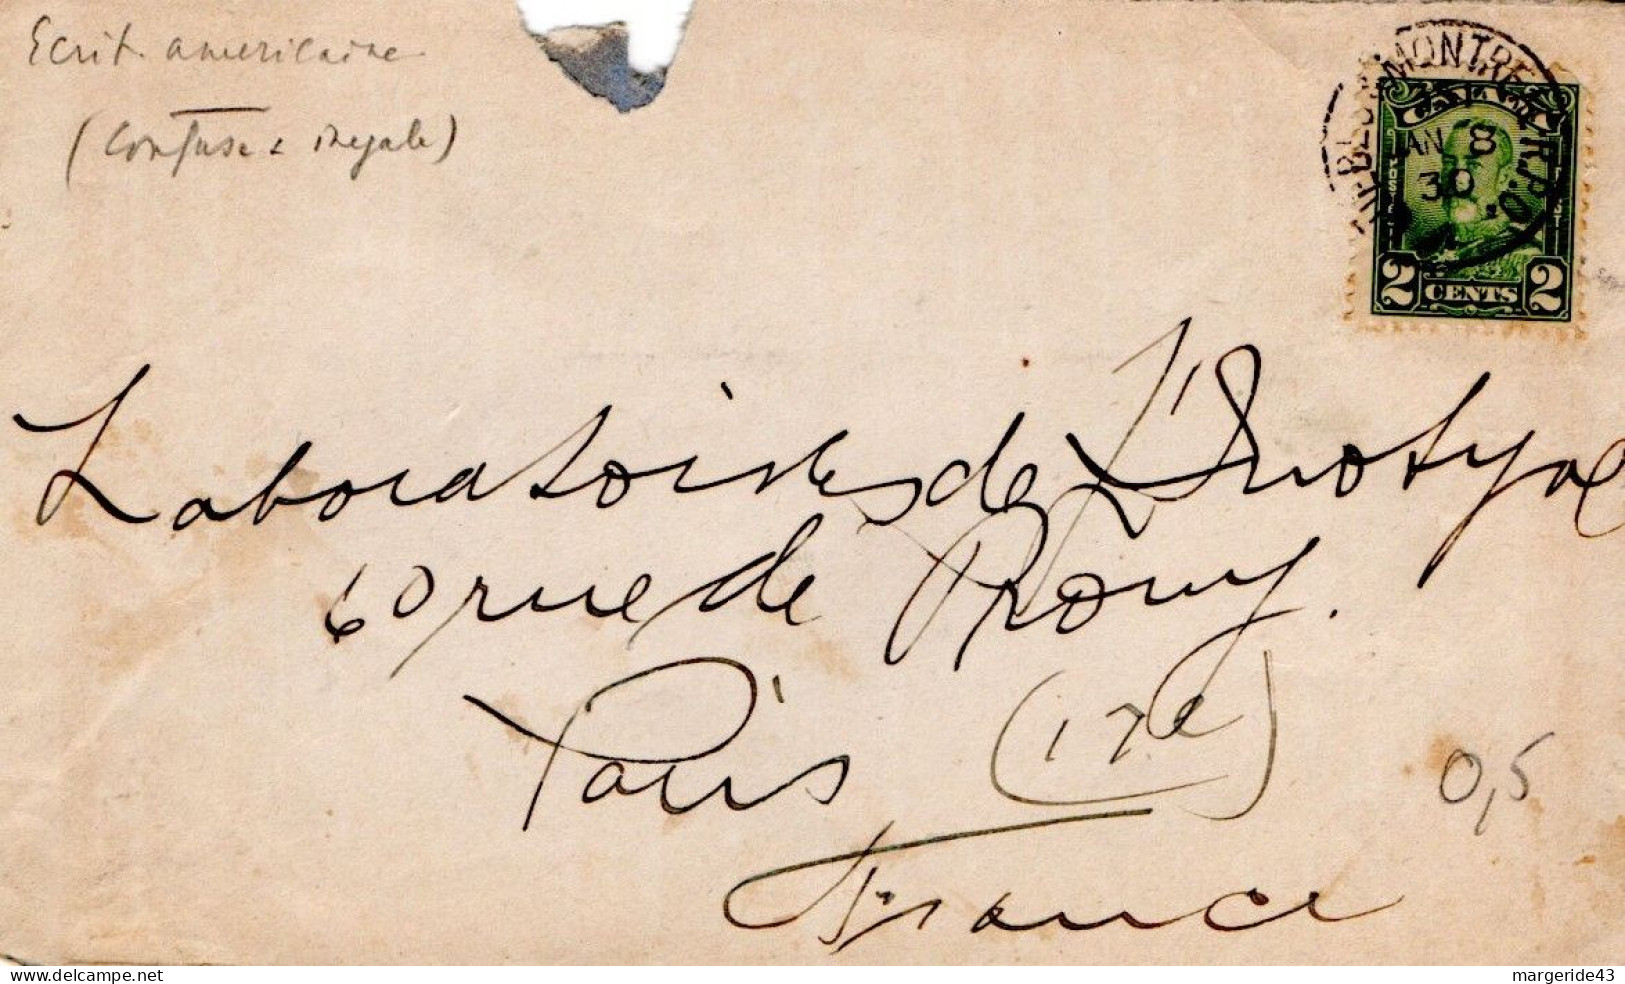 Ecrit. americaine
(confuse & inegale)
MONTREAL R.P.O.
JAN 8
30
2 CENTS 2
Laboratoires de L'Urotyal
60 rue de Prony.
Paris (17e)
France
0,5
delcampe.net
margeride43